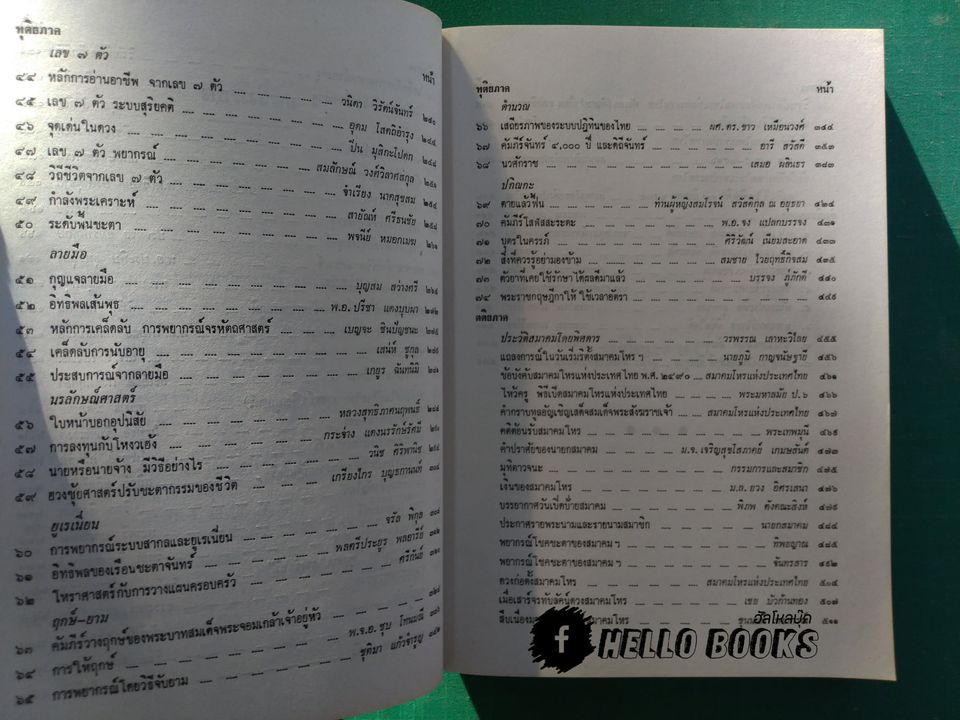 ทุติยภาค
เลข ๗ ตัว
หน้า
๔๔ หลักการอ่านอาชีพ จากเลข ๗ ตัว วนิดา วิรัตน์จันทร์ ๒๔๐
๔๕ เลข ๗ ตัว ระบบสุริยคติ อุดม โสตถิอำรุง
๔๖ จุดเด่นในดวง ปิ่น มุลิกะโปดก
๔๗ เลข ๗ ตัว พยากรณ์ สมลักษณ์ วงศ์วิลาศสกุล ๒๕๑
๔๘ วิถีชีวิตจากเลข ๗ ตัว จำเรียง นาคสุขสม ๒๕๔
๔๙ กำลังพระเคราะห์ สายัณห์ ศรีธนชัย
๕๐ ระดับพื้นชะตา พจนีย์ หมอกเมฆ ๒๖๑
ลายมือ
๕๑ กุญแจลายมือ บุญสม สว่างศรี ๒๖๔
๕๒ อิทธิพลเส้นพุธ พ.อ. ปรีชา แดงบุบผา
๕๓ หลักการเคล็ดลับ การพยากรณ์จรหัตถศาสตร์ เบญจะ ชินปัญชนะ ๒๗๕
๕๔ เคล็ดลับการนับอายุ เสน่ห์ ชูกุล
๕๕ ประสบการณ์จากลายมือ เกยูร ฉันทนิมิ
นรลักษณ์ศาสตร์
๕๖ ใบหน้าบอกอุปนิสัย หลวงสุทธิภาศนฤพนธิ์
๕๗ การลงทุนกับโหงวเฮ้ง กระจ่าง แดงนรรักษ์รัศมี
๕๘ นายหรือนายจ้าง มีวิธีอย่างไร วนช ศิริพานิช
๕๙ ฮวงซุ้ยศาสตร์ปรับชะตากรรมของชีวิต เกรียงไกร บุญธกานนท์
ยูเรเนี่ยน
๖๐ การพยากรณ์ระบบสากลและยูเรเนี่ยน จรัล พิกุล
๖๑ อิทธิพลของเรือนชะตาจันทร์ พลตรีประยูร พลอารีย์
๖๒ โหราศาสตร์กับการวางแผนครอบครัว ศรีกันย์
ฤกษ์-ยาม
๖๓ คัมภีร์วางฤกษ์ของพระบาทสมเด็จพระจอมเกล้าเจ้าอยู่หัว
๖๔ การให้ฤกษ์ พ.จ.อ. ชุบ โหนฉมี
๖๕ การพยากรณ์โดยวิธีจับยาม ชุติมา แก้วจำรูญ
ทุติยภาค หน้า
คำนวณ
๖๖ เสถียรภาพของระบบปฏิทินของไทย ผศ.ดร.ขาว เหมือนวงศ์ ๓๔๔
๖๗ คัมภีร์จันทร์ ๔,๐๐๐ ปี และดิถีจันทร์ อารี สวัสดี ๓๕๓
๖๘ นวศักราช เสมอ ผลินธร ๓๘๓
ปกิณกะ
๖๙ ตายแล้วฟื้น ท่านผู้หญิงสมโรจน์ สวัสดิกุล ณ อยุธยา ๔๒๔
๗๐ คัมภีร์โสฬสสะระตะ พ.อ. จง แปลกบรรจง ๔๓๑
๗๑ บุตรในครรภ์ ศิริวัฒน์ เนียมสะอาด ๔๓๓
๗๒ สิ่งที่ควรรู้อย่ามองข้าม สมชาย ไวยฤทธิ์กิจสม ๔๓๕
๗๓ ตัวยาที่เคยใช้รักษา ได้ผลดีมาแล้ว บรรจง ภู่ภักดี ๔๔๐
๗๔ พระราชกฤษฎีกาให้ ใช้เวลาอัตรา ๔๔๙
ตติยภาค
ประวัติสมาคมโดยพิศดาร วรพรรณ เลาหะวิไลย ๔๕๕
แถลงการณ์ในวันเริ่มริตั้งสมาคมโหร ฯ นายภูมิ กาญจน์ษฐายี ๔๖๐
ข้อบังคับสมาคมโหรแห่งประเทศไทย พ.ศ. ๒๔๙๐ สมาคมโหรแห่งประเทศไทย ๔๖๑
ไหว้ครู พิธีเปิดสมาคมโหรแห่งประเทศไทย พระมหาสมัย ป.๖ ๔๖๖
คำกราบทูลอัญเชิญเสด็จสมเด็จพระสังฆราชเจ้า สมาคมโหรแห่งประเทศไทย ๔๖๗
คติต้อนรับสมาคมโหร พระเทพมุนี ๔๖๙
คำปราศัยของนายกสมาคม ม.จ. เจริญสุขโสภาคย์ เกษมสันต์ ๔๗๓
มุทิตาวจนะ กรรมการและสมาชิก ๔๗๕
เงินของสมาคมโหร ม.ล. ยวง อิศรเสนา ๔๗๖
บรรยากาศวันเปิดป้ายสมาคม พิภพ ตังคณะสิงห์ ๔๗๙
ประกาศรายพระนามและรายนามสมาชิก นายกสมาคม ๔๘๔
พยากรณ์โชคชะตาของสมาคม ฯ ทิพยญาณ ๔๘๕
พยากรณ์โชคชะตาของสมาคม ฯ จันทรสาร ๔๙๒
ดวงก่อตั้งสมาคมโหร สมาคมโหรแห่งประเทศไทย ๕๐๔
เมื่อเสาร์จรทับลัคน์ดวงสมาคมโหร เชย บัวก้านทอง ๕๐๗
สืบเนื่อง สมาคมโหร ๕๑๑
ฮัลโหลบุ๊ค
f HELLO BOOKS